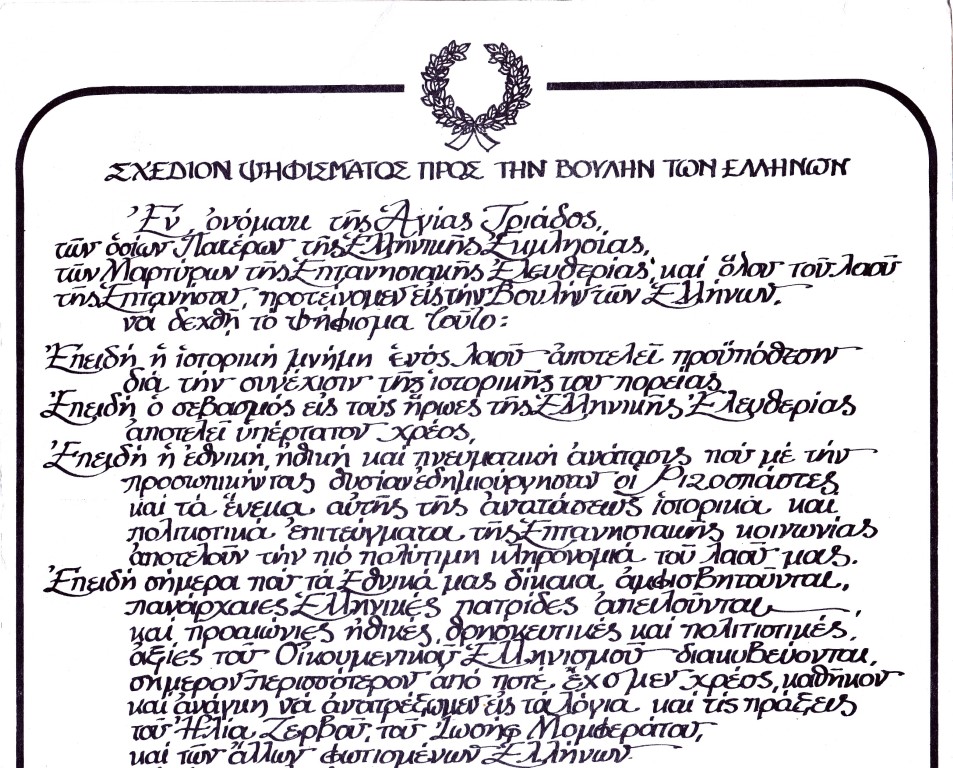 ΣΧΕΔΙΟΝ ΨΗΦΙΣΜΑΤΟΣ ΠΡΟΣ ΤΗΝ ΒΟΥΛΗΝ ΤΩΝ ΕΛΛΗΝΩΝ
Ἐν ὀνόματι τῆς Ἁγίας Τριάδος,
τῶν ὁσίων Πατέρων τῆς Ἑλληνικῆς Ἐκκλησίας,
τῶν Μαρτύρων τῆς Ἑπτανησιακῆς Ἐλευθερίας, καί ὅλου τοῦ λαοῦ
τῆς Ἑπτανήσου, προτείνομεν εἰς τήν Βουλήν τῶν Ἑλλήνων,
νά δεχθῇ τό ψήφισμα τοῦτο:
Ἐπειδή ἡ ἱστορική μνήμη ἑνός λαοῦ ἀποτελεῖ προϋπόθεσιν
διά τήν συνέχισιν τῆς ἱστορικῆς του πορείας
Ἐπειδή ὁ σεβασμός εἰς τούς ἥρωες τῆς Ἑλληνικῆς Ἐλευθερίας
ἀποτελεῖ ὑπέρτατον χρέος,
Ἐπειδή ἡ ἐθνική, ἠθική καί πνευματική ἀνάτασις πού μέ τήν
προσωπικήν τας θυσίαν ἐδημιούργησαν οἱ Ριζοσπάστες
καί τά ἕνεκα αὐτῆς τῆς ἀνατάσεως ἱστορικά καί
πολιτιστικά ἐπιτεύγματα τῆς Ἑπτανησιακῆς κοινωνίας
ἀποτελοῦν τήν πιό πολύτιμη κληρονομιά τοῦ λαοῦ μας.
Ἐπειδή σήμερα πού τά Ἐθνικά μας δίκαια ἀμφισβητοῦνται,
πανάρχαιες Ἑλληνικές πατρίδες ἀπειλοῦνται,
καί προαιώνιες ἠθικές, θρησκευτικές καί πολιτιστικές,
ἀξίες τοῦ Οἰκουμενικοῦ Ἑλληνισμοῦ διακυβεύονται,
σήμερον περισσότερον ἀπό ποτέ, ἔχομεν χρέος, καθῆκον
καί ἀνάγκη νά ἀνατρέξωμεν εἰς τά λόγια καί τίς πράξεις
τοῦ Ἠλία Ζερβοῦ, τοῦ Ἰωσήφ Μομφεράτου,
καί τῶν ἄλλων φωτισμένων Ἑλλήνων